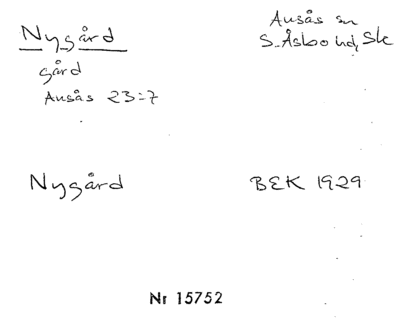 Nygård
Ausås sn
S. Åsbo hd, Sk
gård
Ausås 23:7
Nygård
BEK 1929
Nr 15752